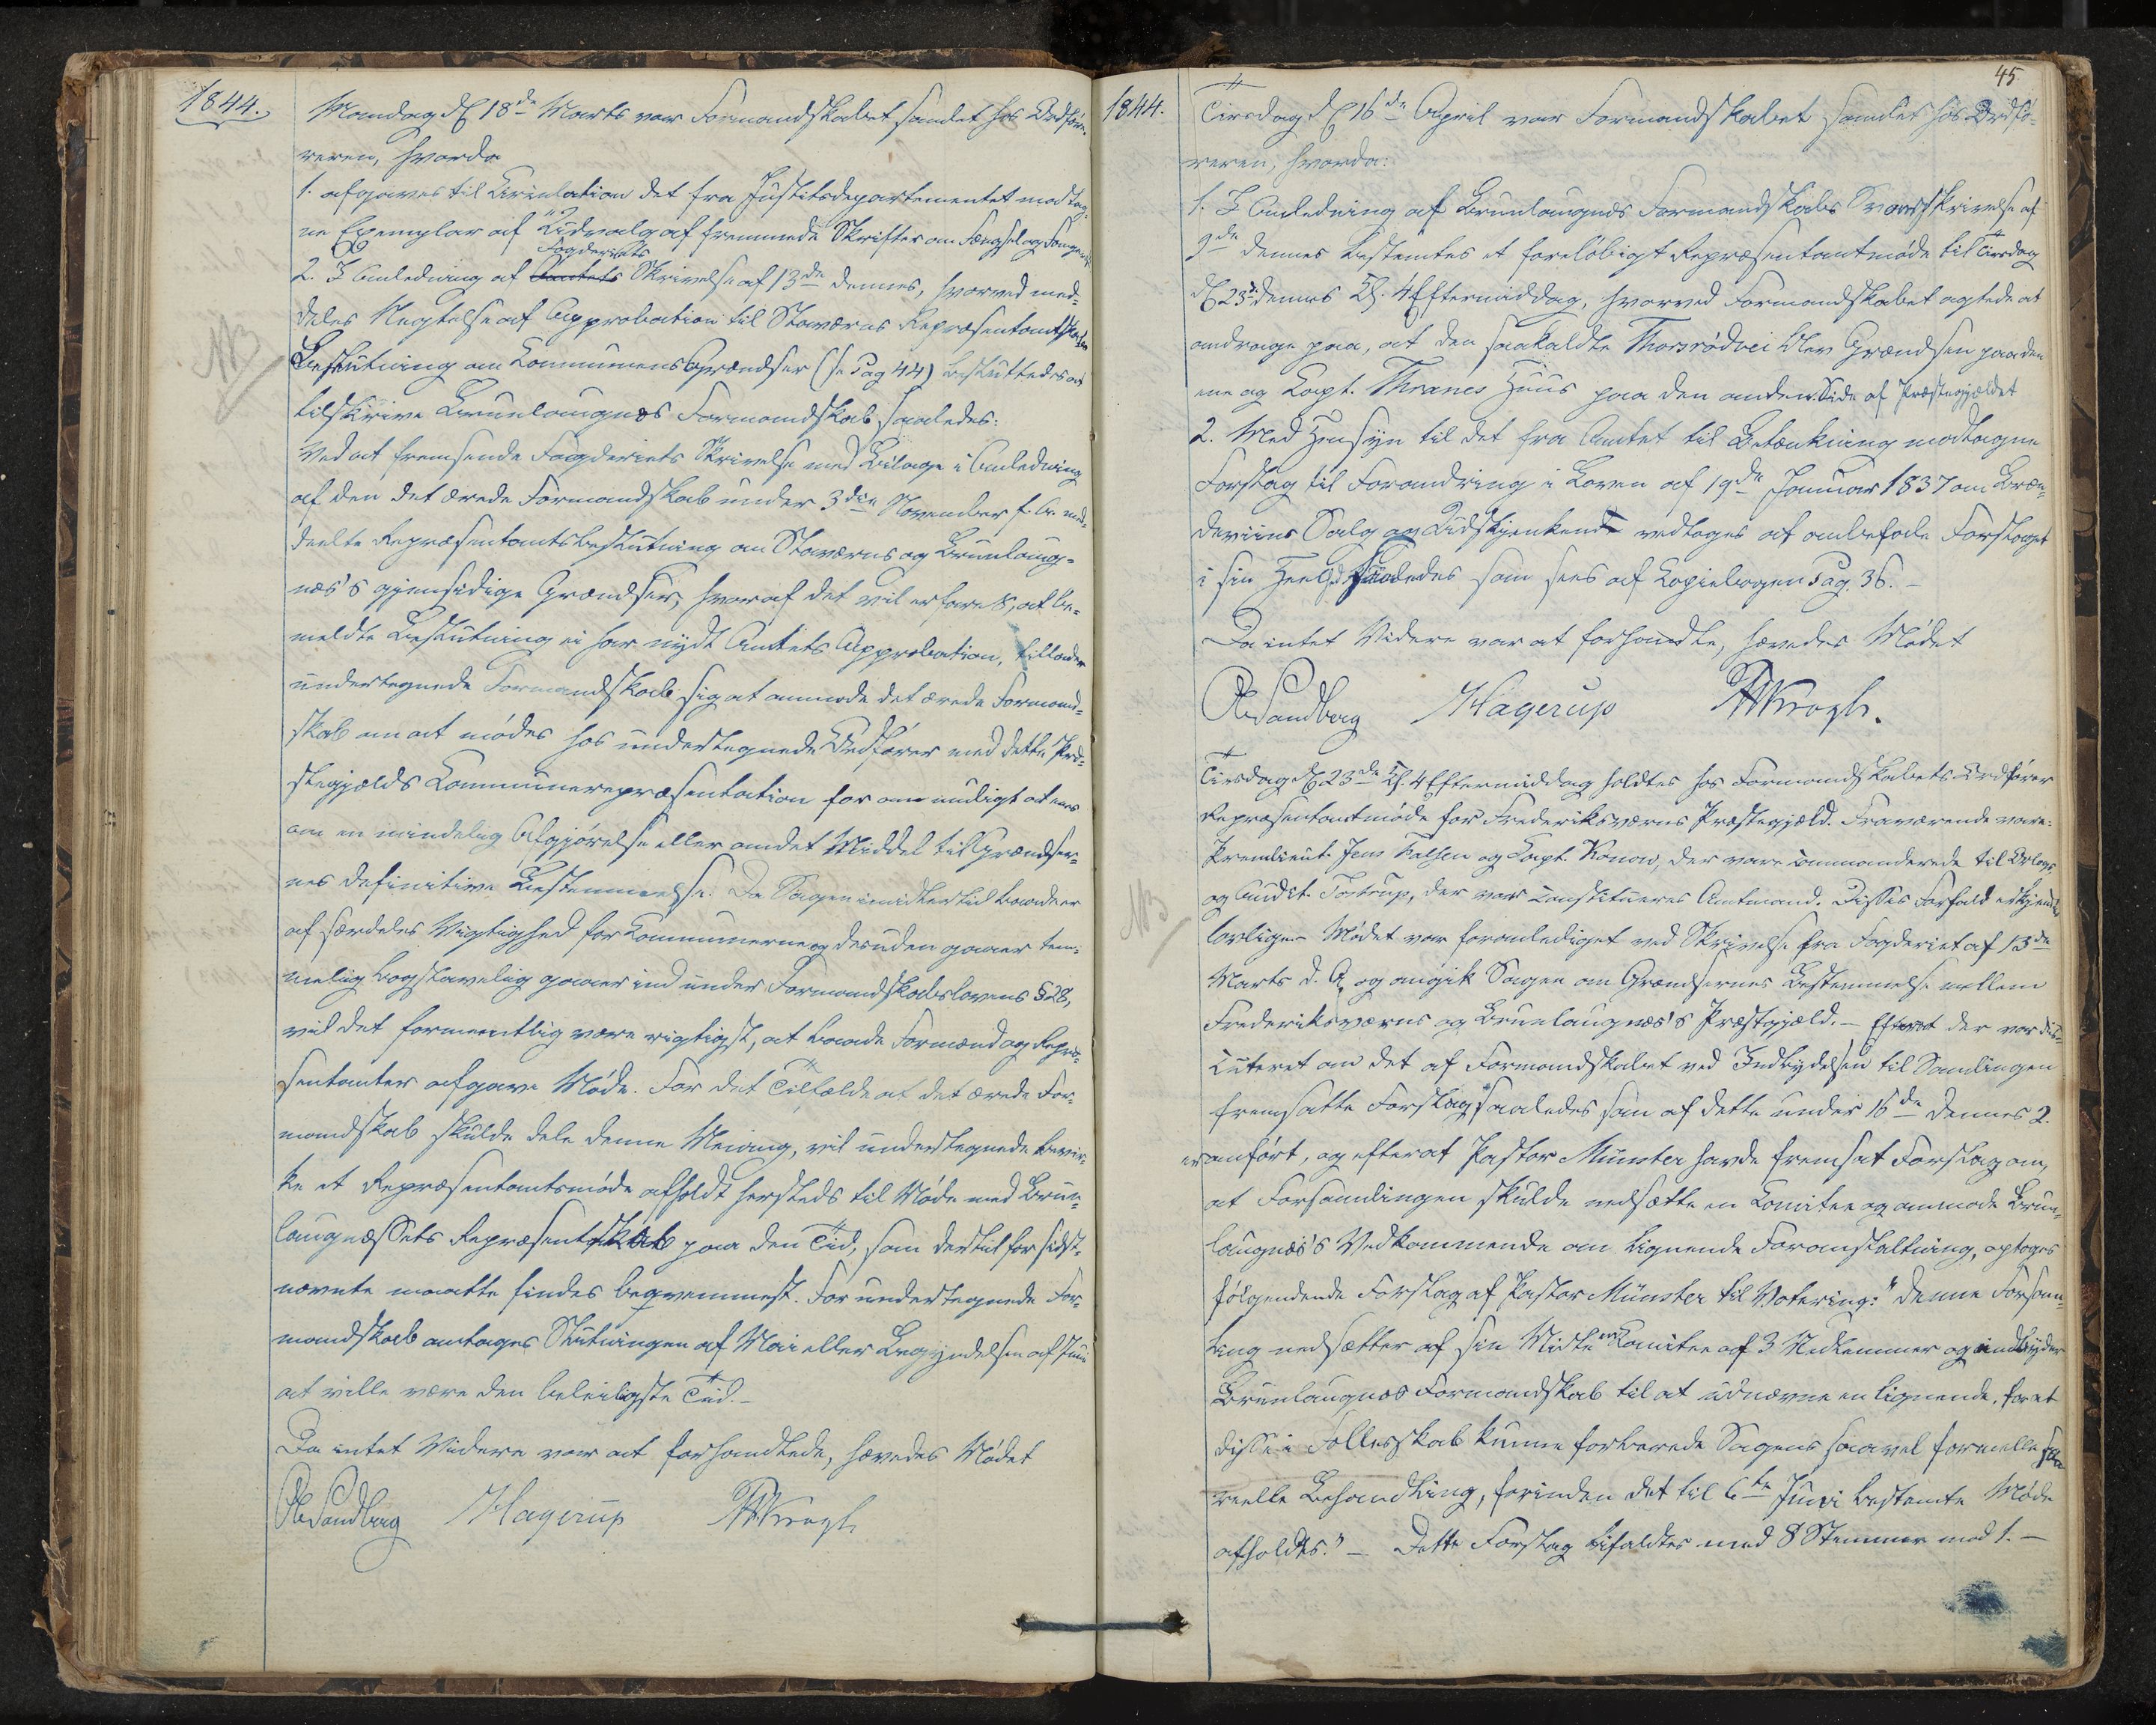 1844.
Mandag d. 18de Marts var Formandskabet samlet hos Ordfø-
reren, hvorda
1. afgaves til Cirkulation det fra Justitsdepartementet modtag-
ne Exemplar af "Udvalg af fremmede Skrifter om Fængsel og Fanger
Fogderiets
2. I Anledning af Amtets Skrivelse af 13de dennes, hvorved med-
deles Negtelse af Approbation til Staværns Repræsentantskabs
Beslutning om Kommunens Grændser (se Pag 44) besluttedes at
NB
tilskrive Brunlaugnæs Formandskab saaledes:
Ved at fremsende Fogderiets Skrivelse med Bilage i Anledning
af den det ærede Formandskab under 3die November f. A. med-
deelte Repræsentantsbeslutning om Staværns og Brunlaug-
næs's gjensidige Grændser, hvoraf det vil erfares, at be-
meldte Beslutning ei har nydt Amtets Approbation, tillader
undertegnede Formandskab sig at anmode det ærede Formand-
skab om at mødes hos undertegnede Ordfører med dette Præ-
stegjelds Kommunerepræsentation for om muligt at enes
om en mindelig Afgjørelse eller andet Middel til Grændser-
nes definitive Bestemmelse. Da Sagen imidlertid baade er
af særdeles Vigtighed for Kommunerne og desuden gaaer tem-
melig bogstavelig gaaer ind under Formandskabslovens §28,
vil det formeentlig være rigtigst, at baade Formænd og Repræ-
sentanter afgave Møde. For det Tilfælde at det ærede For-
mandskab skulde dele denne Mening, vil undertegnede bevir-
ke et Repræsentantsmøde afholdt hersteds til Møde med Brun-
laugnæssets Repræsentskab paa den Tid, som dertil for sidst-
nævnte maatte findes beqvemmest. For undertegnede For-
mandskab antages Slutningen af Mai eller Begyndelsen af Juni
at ville være den beleiligste Tid.—
Da intet Videre var at forhandlede, hævedes Mødet
Ole Sandberg Hagerup Krogh
45.
1844.
Tirsdag d. 16de April var Formandskabet samlet hos Ordfø-
reren, hvorda:
1. I Anledning af Brunlaugnæs Formandskabs Svarskrivelse af
9de dennes bestemtes et foreløbigt Repræsentantmøde til Tirsdag
d. 23de dennes Kl. 4 Eftermiddag, hvorved Formandskabet agtede at
andrage paa, at den saakaldte Thorsrødvei blev Grændsen paa den
ene og Capt. Thranes Huus paa den anden Side af Præstegjeldet
2. Med Hensyn til det fra Amtet til Betænkning modtagne
Forslag til Forandring i Loven af 19de Januar 1837 om Bræn-
deviins Salg og Udskjenkende vedtages at anbefale Forslaget
i sin Heelhed saaledes som sees af Kopiebogen Pag. 36.—
Da intet Videre var at forhandle, hævedes Mødet
Ole Sandberg Hagerup Krogh.
Tirsdag d. 23de Kl. 4 Eftermiddag holdtes hos Formandskabets Ordfører
Repræsentantmøde for Frederiksværns Præstegjeld. Fraværende vare:
Premlieut. Jens Falsen og Capt. Konow, der vare commanderede til Orlogs,
og Audit. Tostrup, der var constitueret Amtmand. Disses Forfald erkjendtes
NB
lovlige.— Mødet var foranlediget ved Skrivelse fra Fogderiet af 13de
Marts d. A. og angik Sagen om Grændsernes Bestemmelse mellem
Frederiksværns og Brunlaugnæs's Præstgjeld.— Efterat der var dis-
cuteret om det af Formandskabet ved Indbydelsen til Samlingen
fremsatte Forslag saaledes som af dette under 16de dennes 2.
er anført, og efterat Pastor Münster havde fremsat Forslag om,
at Forsamlingen skulde nedsætte en Comitee og anmode Brun-
laugnæs's Vedkommende om lignende Foranstaltning, optoges
følgendende Forslag af Pastor Münster til Votering: "Denne Forsam-
ling nedsætter af sin Midte en Comitee af 3 Medlemmer og indbyder
Brunlaugnæs Formandskab til at udnævne en lignende, for at
disse i Fællesskab kunne forberede Sagens saavel formelle som
reelle Behandling, forinden det til 6te Juni bestemte Møde
afholdtes."— Dette Forslag bifaldtes med 8 Stemmer mod 1.—